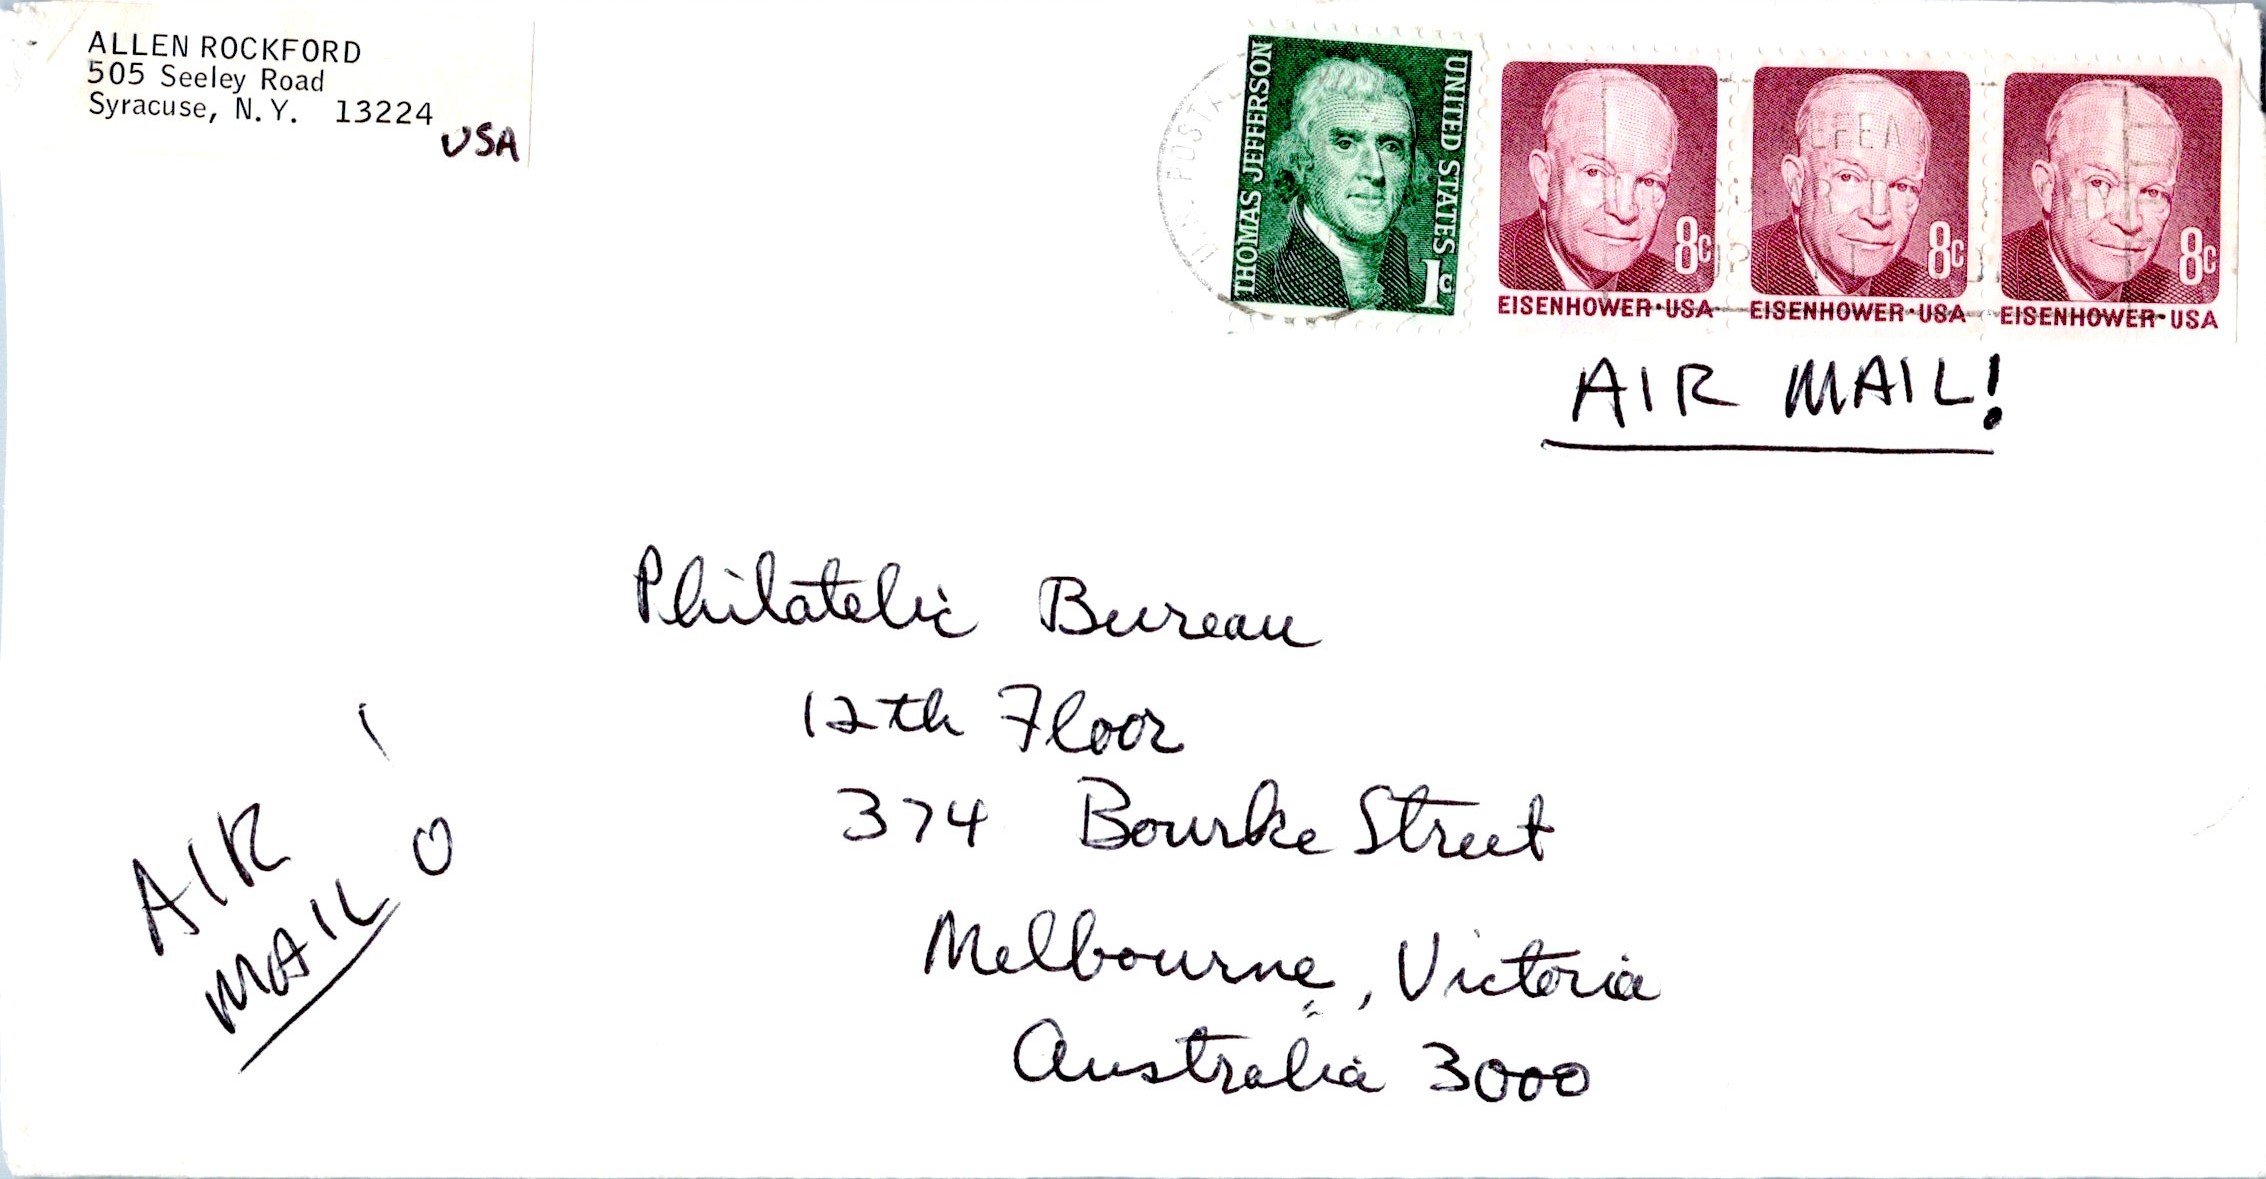 ALLEN ROCKFORD
505 Seeley Road
Syracuse, N.Y. 13224
USA
THOMAS JEFFERSON
UNITED STATES
1c
8c
EISENHOWER·USA
8c
EISENHOWER·USA
8c
EISENHOWER·USA
U.S. POSTAL
AIR MAIL!
Philatelic Bureau
12th Floor
374 Bourke Street
Melbourne, Victoria
Australia 3000
AIR
MAIL